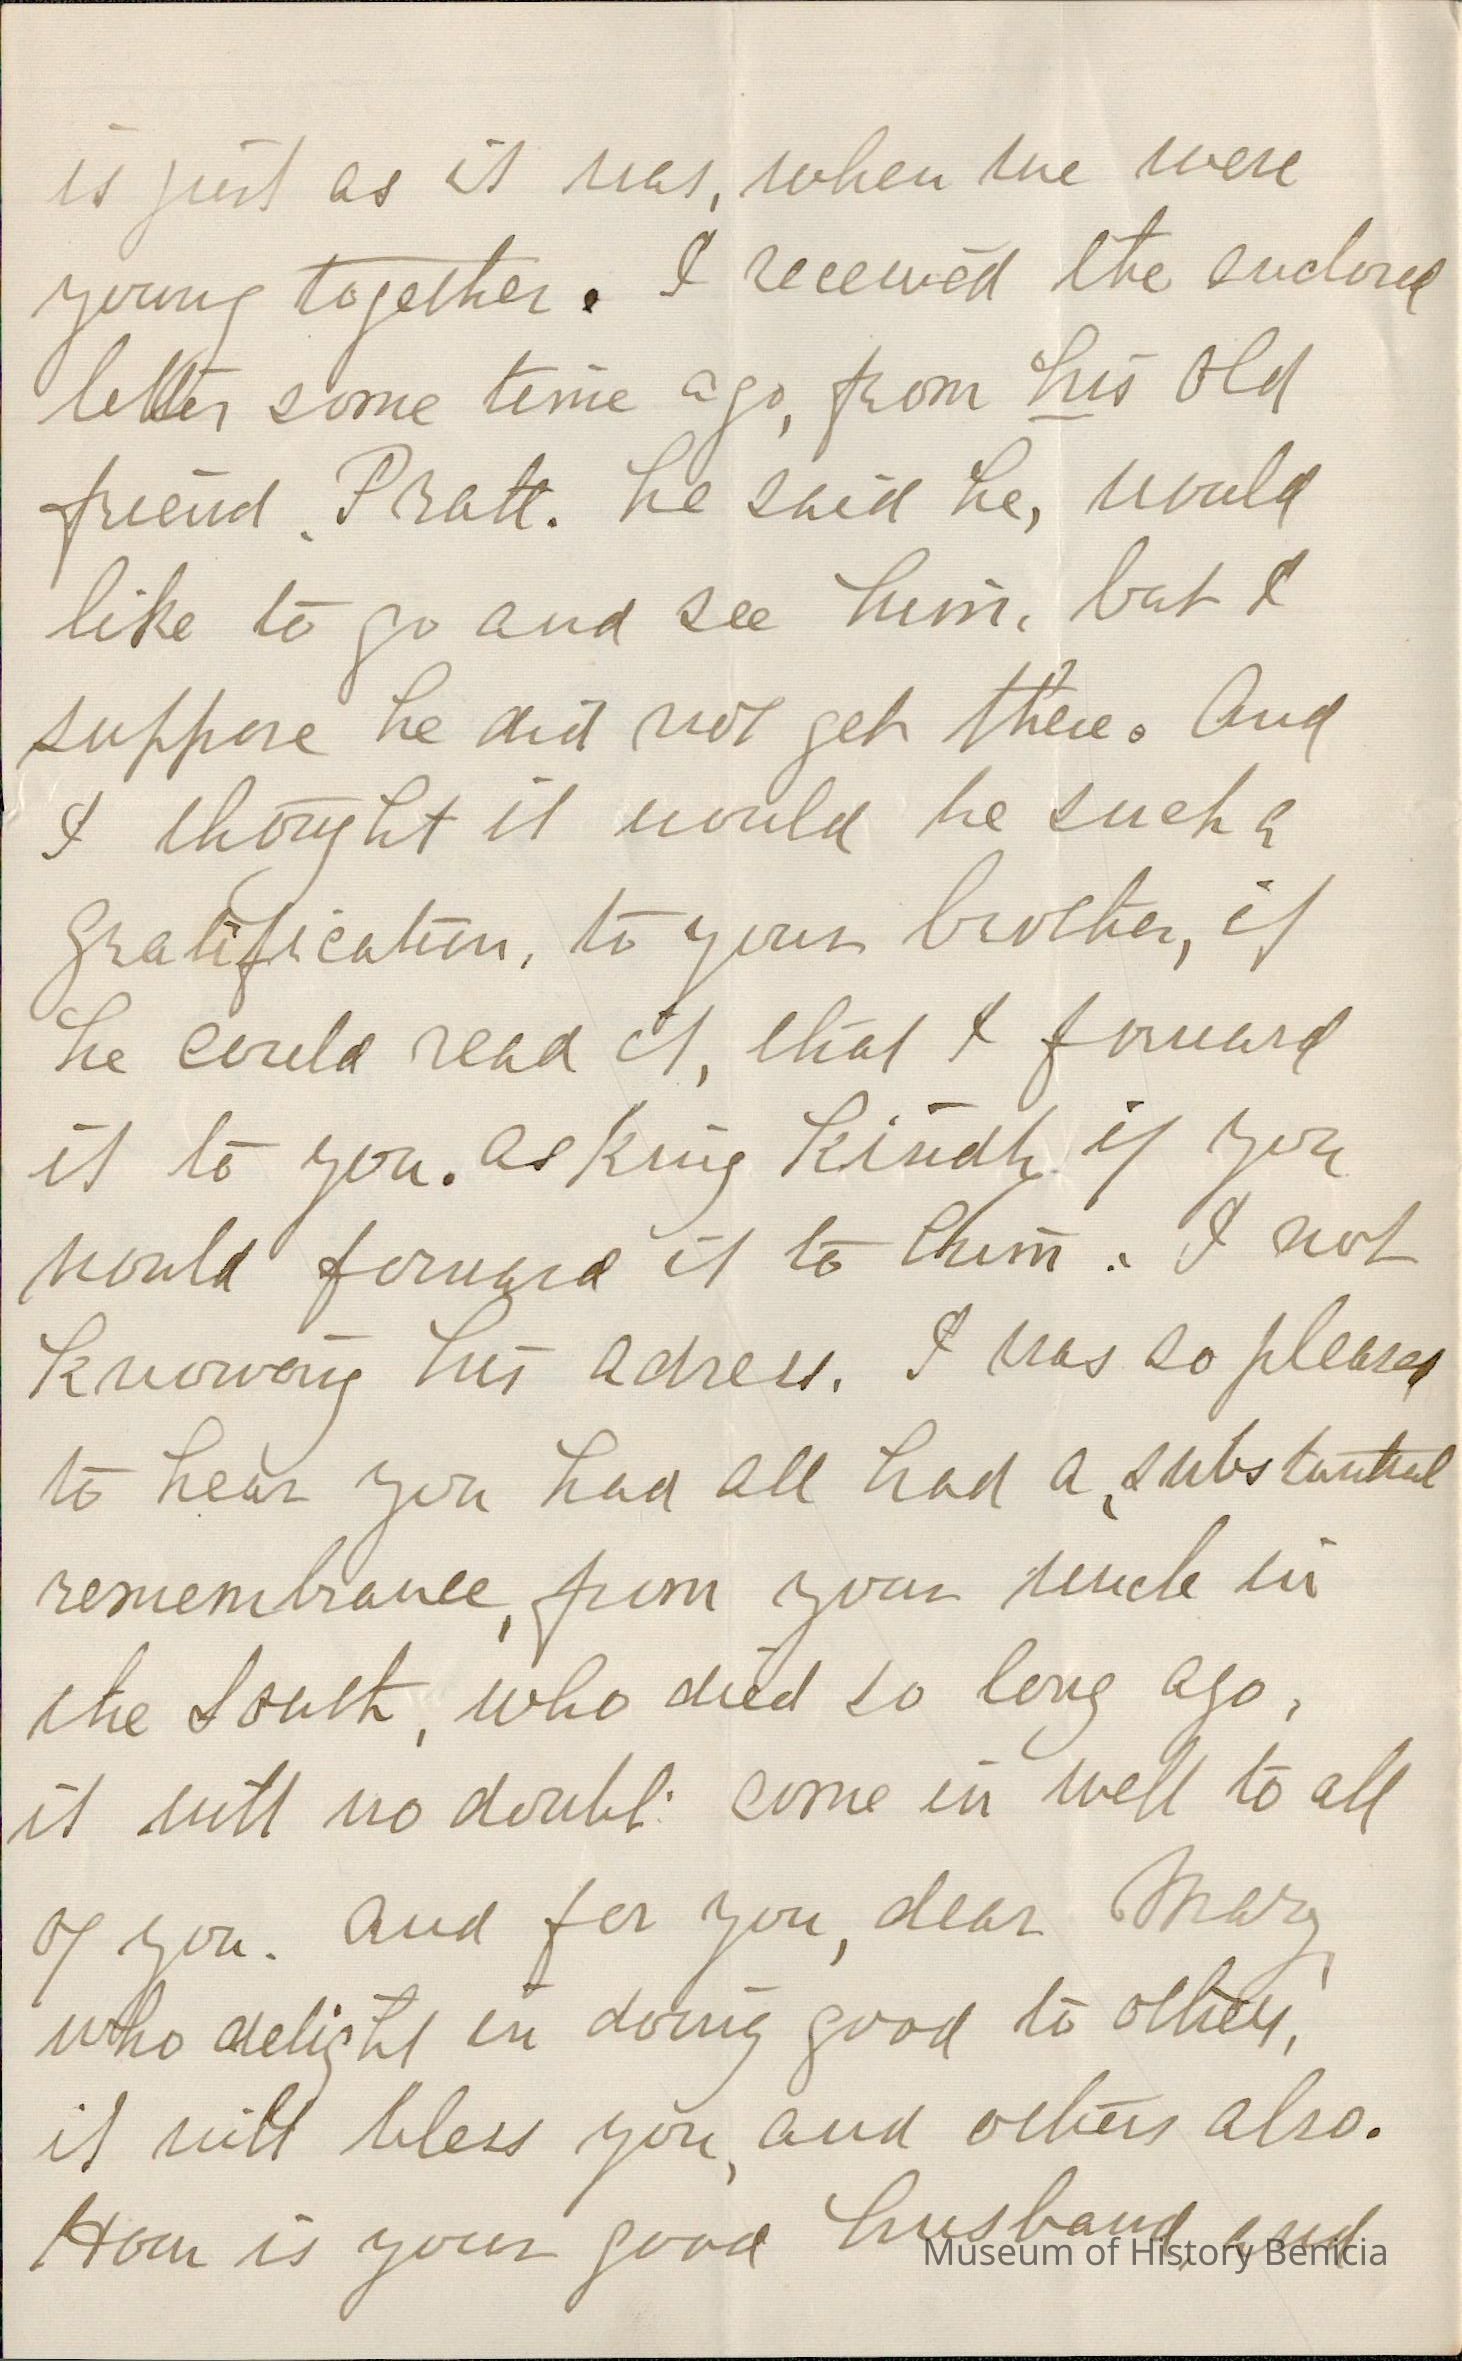 is just as it was, when we were
young together. I received the enclosed
letter some time ago, from his old
friend, Pratt. he said he, would
like to go and see him, but I
suppose he did not get there. And
I thought it would be such a
gratification, to your brother, if
he could read it, that I forward
it to you. asking kindly if you
would forward it to him. I not
knowing his adress. I was so pleased
to hear you had all had a, substantial
remembrance, from your uncle in
the South, who died so long ago,
it will no doubt come in well to all
of you. And for you, dear Mary,
who delight in doing good to others,
it will bless you, and others also.
How is your good husband, and
Museum of History Benicia